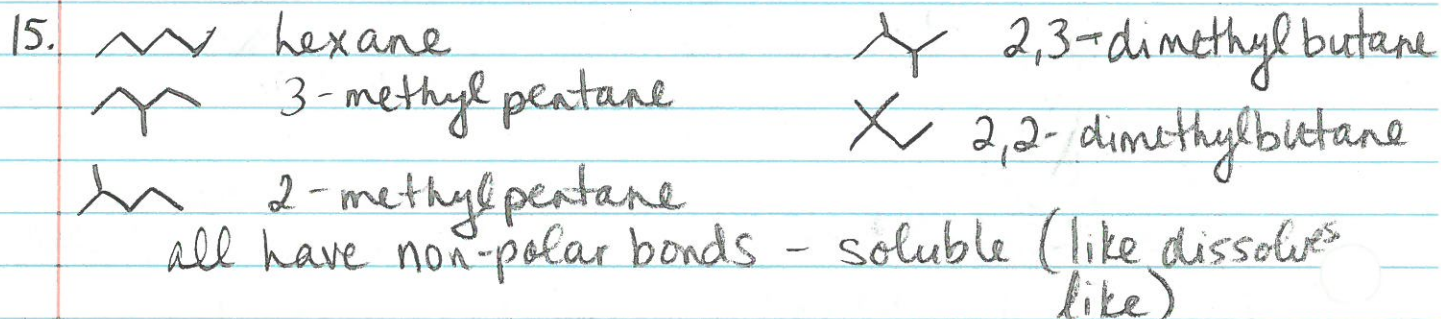 15. hexane 2,3-dimethylbutane
3-methylpentane
2,2-dimethylbutane
2-methylpentane
all have non-polar bonds - soluble (like dissolves
like)